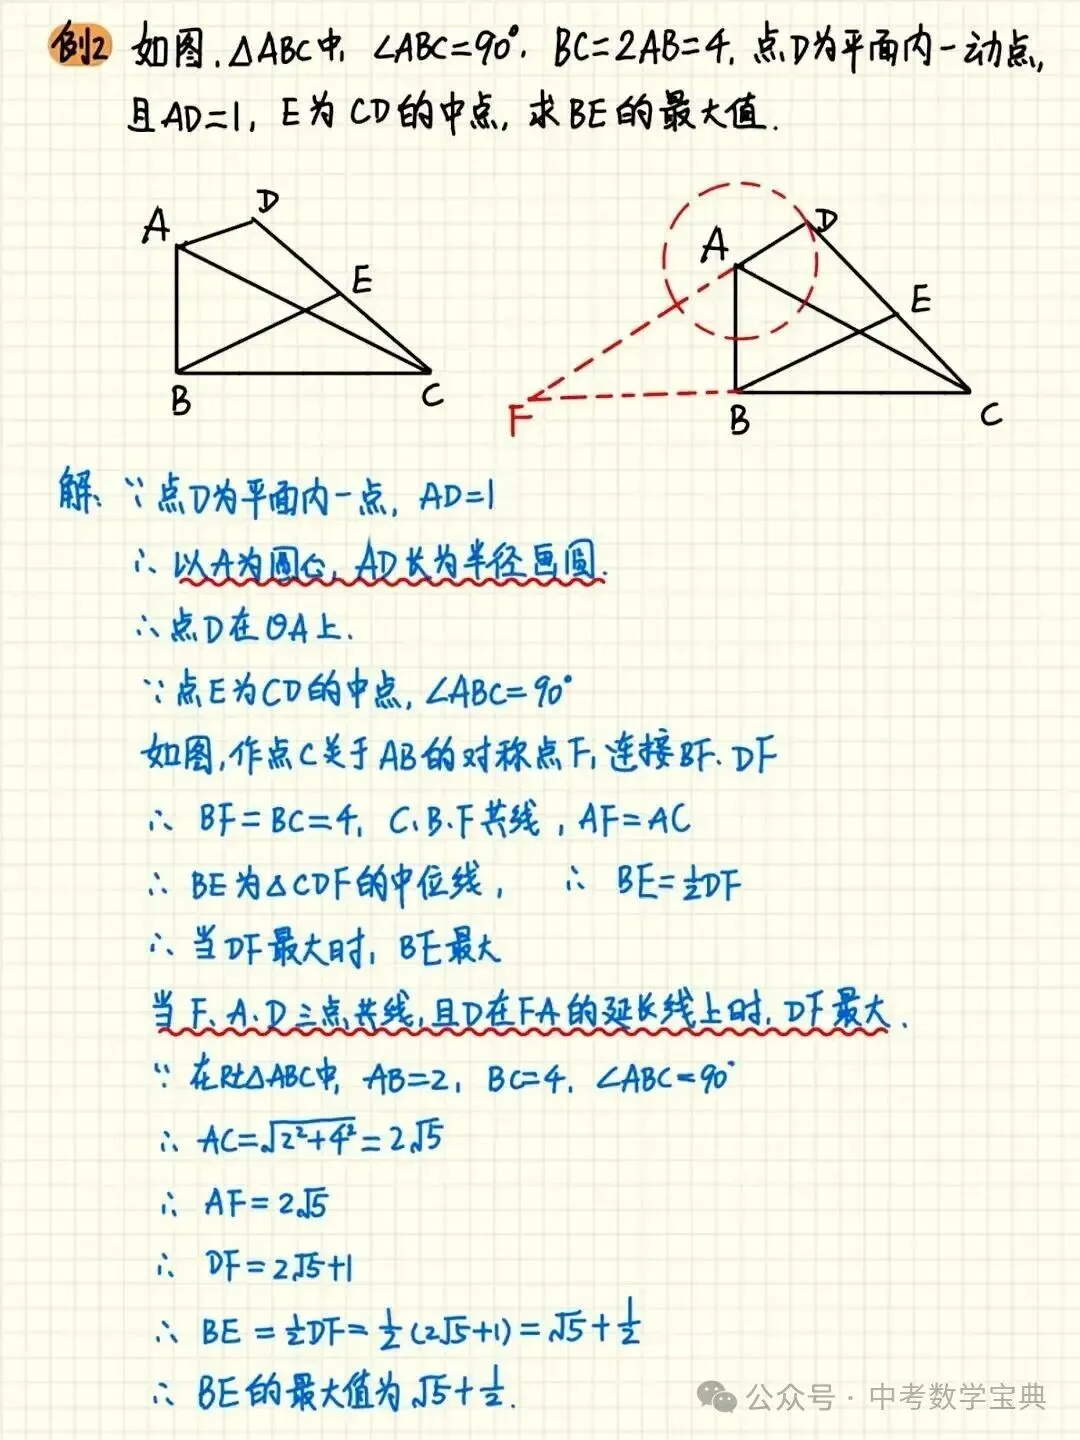 例2 如图,△ABC中,∠ABC=90°,BC=2AB=4,点D为平面内一动点,
且AD=1,E为CD的中点,求BE的最大值.
A D E B C
A D E F B C
解:∵点D为平面内一点,AD=1
∴以A为圆心,AD长为半径画圆.
∴点D在⊙A上.
∵点E为CD的中点,∠ABC=90°
如图,作点C关于AB的对称点F,连接BF、DF
∴ BF=BC=4,C、B、F共线,AF=AC
∴ BE为△CDF的中位线, ∴ BE=½DF
∴ 当DF最大时,BE最大
当F、A、D三点共线,且D在FA的延长线上时,DF最大.
∵ 在Rt△ABC中,AB=2,BC=4,∠ABC=90°
∴ AC=√2²+4²=2√5
∴ AF=2√5
∴ DF=2√5+1
∴ BE=½DF=½(2√5+1)=√5+½
∴ BE的最大值为√5+½.
公众号·中考数学宝典